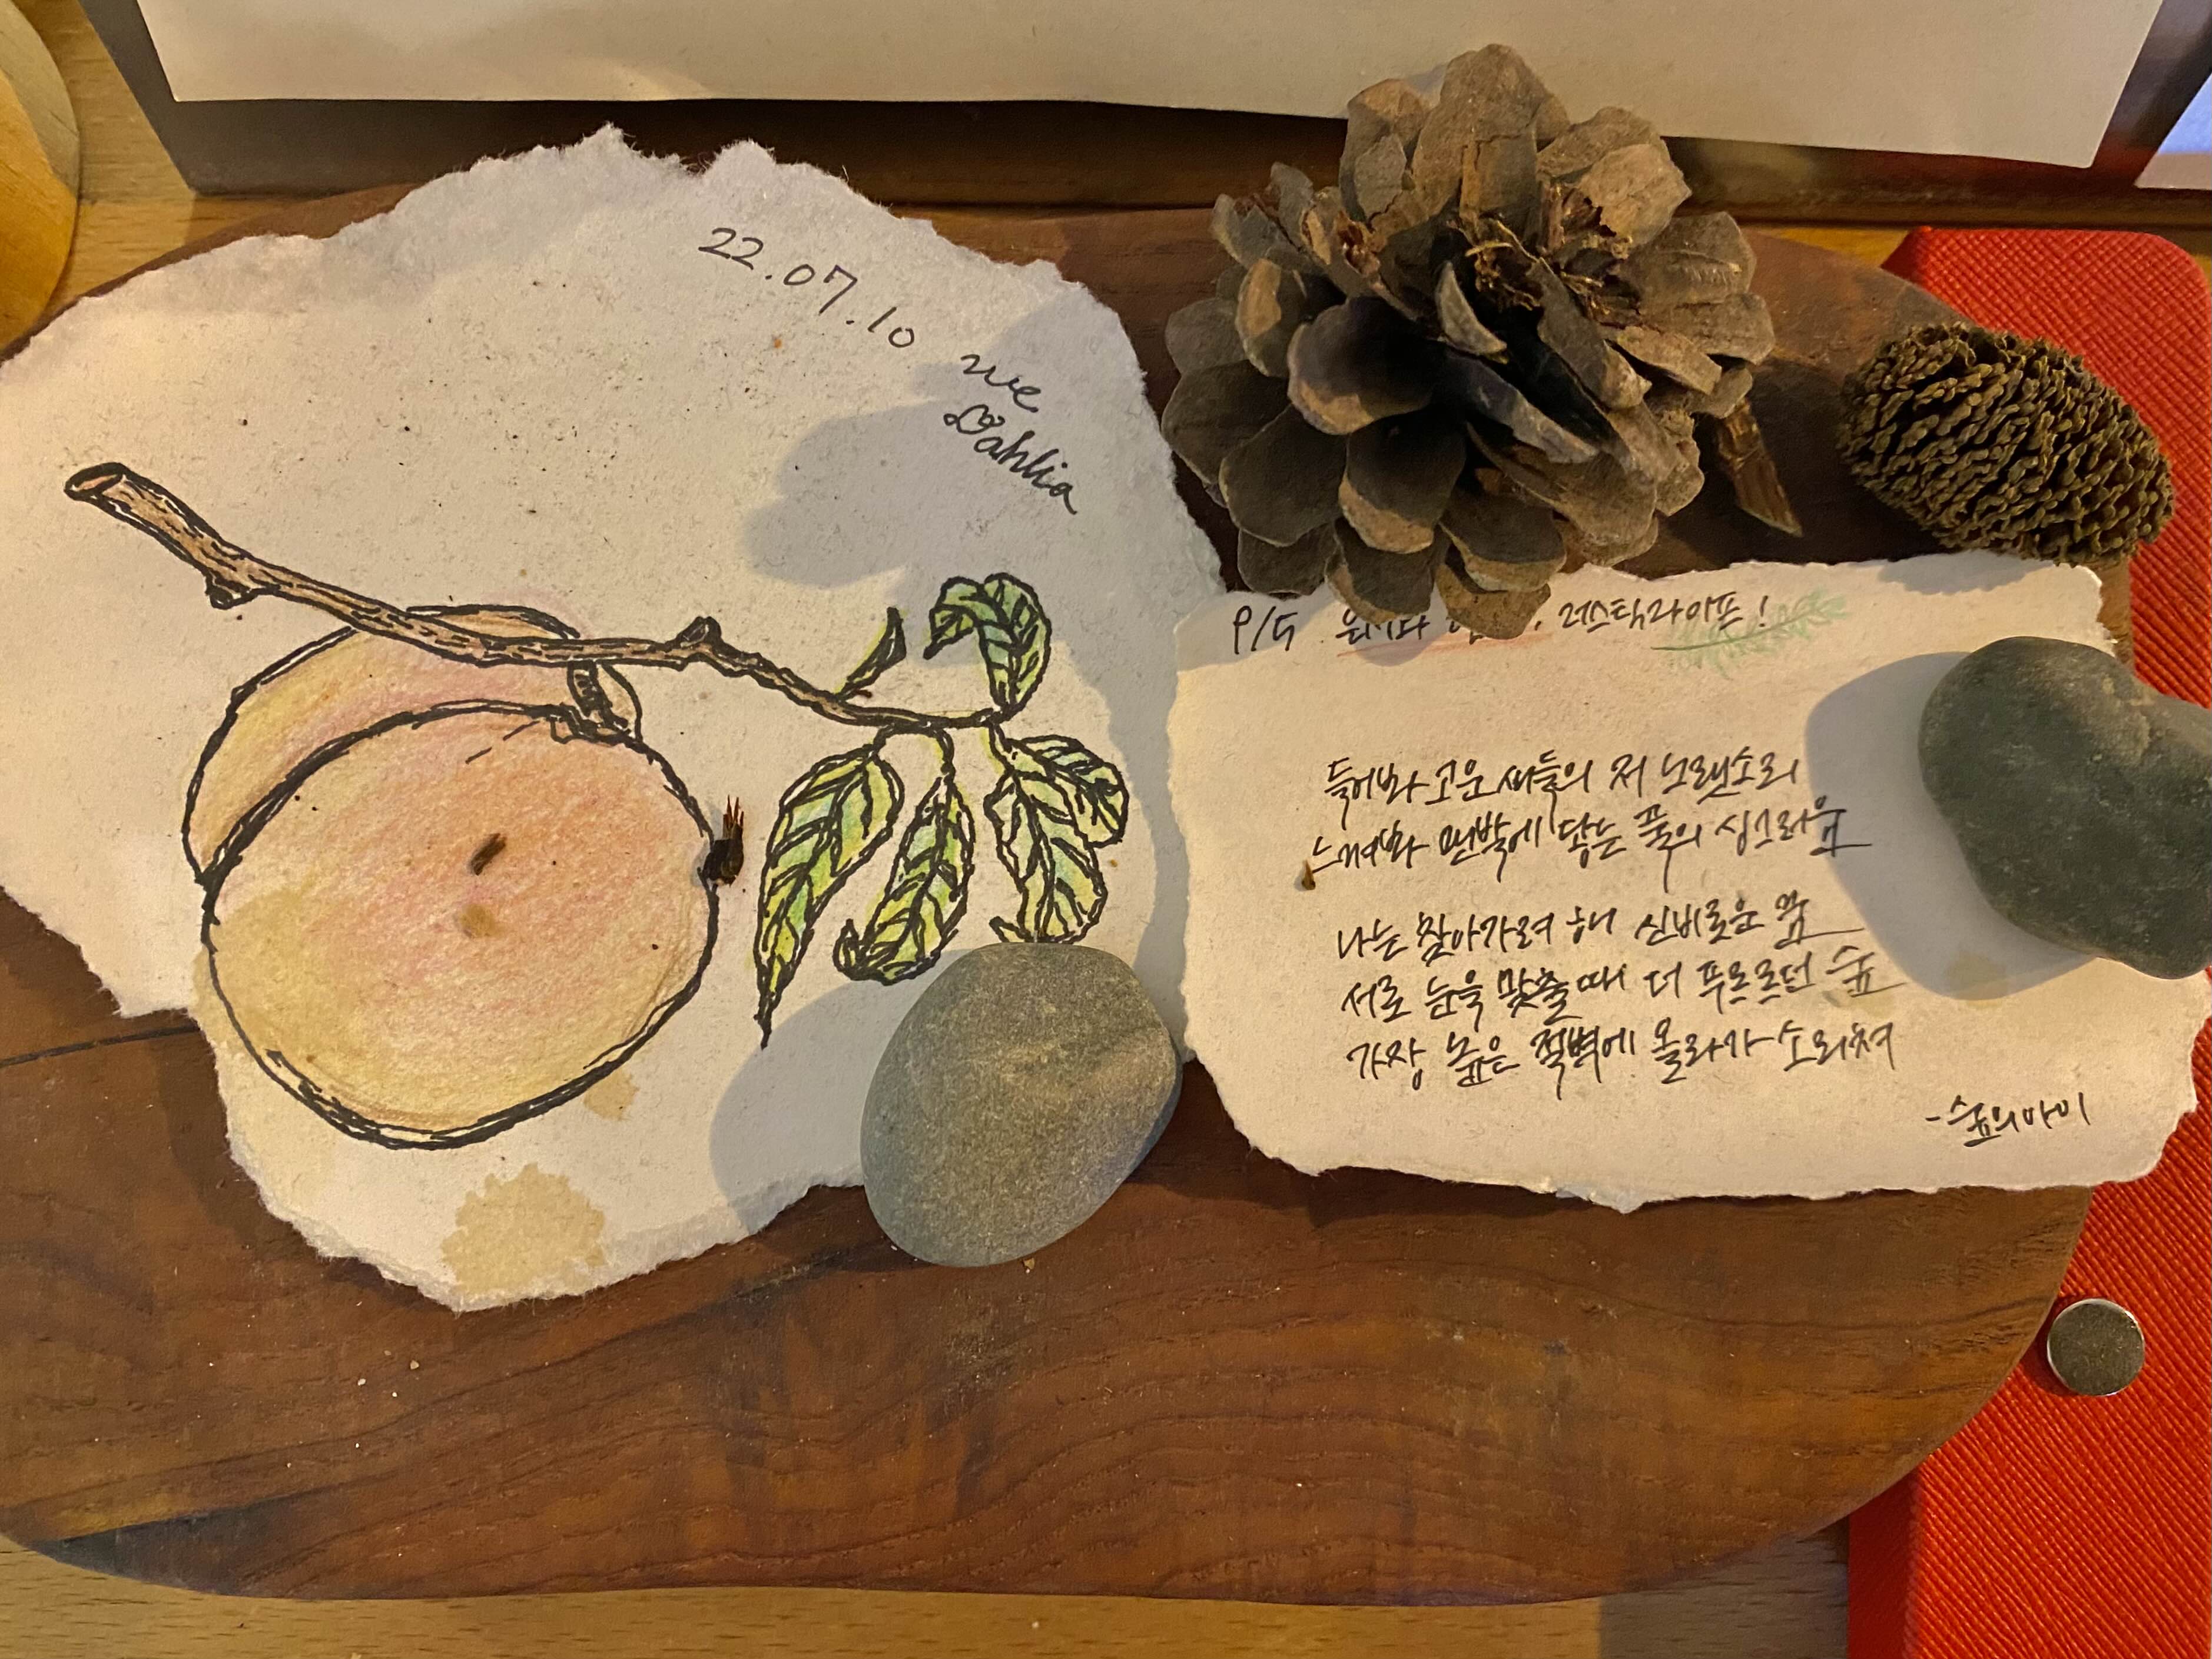 22.07.10
we
Dahlia
9/5. 러스틱라이프!
들어봐 고운 새들의 저 노랫소리
느껴봐 맨발에 닿는 풀의 싱그러움
나는 찾아가려 해 신비로운 꿈
서로 눈을 맞출 때 더 푸르르던 숲
가장 높은 절벽에 올라가 소리쳐
-숲의 아이